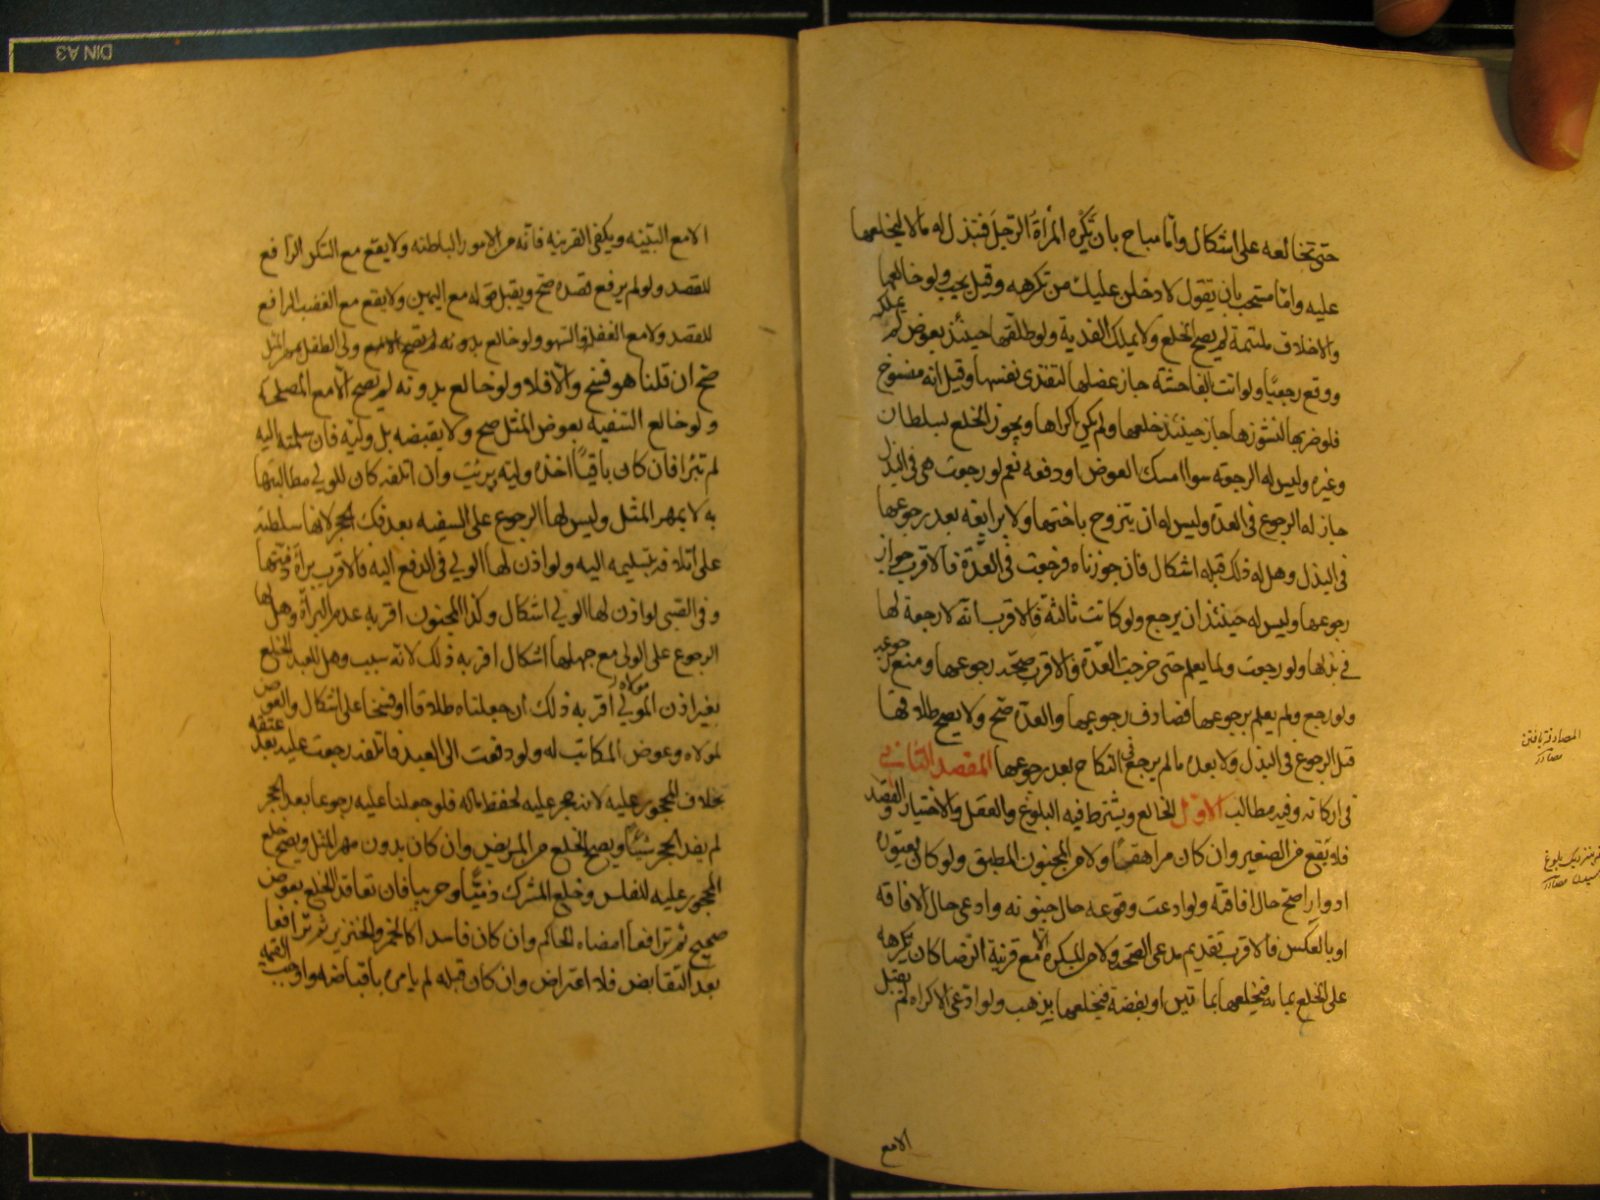 حتى تخالعه على اشكال واما مباح بان تكره المرأة الرجل فتبذل له مالا ليخلعها
عليه واما مستحب بان يقول لادخلن عليك من تكرهه وقيل يجب ولو خالعها
والاخلاق ملتئمة لم يصح الخلع ولا يملك الفدية ولو طلقها حينئذ بعوض لم يملكه
ووقع رجعيا ولو اتت الفاحشة جاز عضلها لتفتدى نفسها وقيل انه منسوخ
فلو ضربها لنشوزها جاز حينئذ خلعها ولم يكن اكراها ويجوز الخلع بسلطان
وغيره وليس له الرجعة سوا امسك العوض او دفعه نعم لو رجعت هى فى البذل
جاز له الرجوع فى العدة وليس له ان يتزوج باختها ولا برابعة بعد رجوعها
فى البذل وهل له ذلك قبله اشكال فان جوزناه فرجعت فى العدة فالاقرب جواز
رجوعها وليس له حينئذ ان يرجع ولو كانت ثالثة فالاقرب انه لا رجعة لها
في بذلها ولو رجعت ولما يعلم حتى خرجت العدة فالاقرب صحة رجوعها ومنع رجوعه
ولو رجع ولم يعلم برجوعها فصادف رجوعها والعدة صح ولا يصح طلاقها
قبل الرجوع فى البذل ولا بعده ما لم يرجع فى النكاح بعد رجوعها المقصد الثانى
فى اركانه وفيه مطالب الاول الخالع ويشترط فيه البلوغ والعقل والاختيار والقصد
فلا يقع من الصغير وان كان مراهقا ولا من المجنون المطبق ولو كان يعتوره
ادوارا صح حال افاقته ولو ادعت وقوعه حال جنونه وادعى حال الافاقة
او بالعكس فالاقرب تقديم مدعى الصحة ولا من المكره الا مع قرينة الرضا كان يكرهه
على الخلع بمائة فيخلعها بمائتين او بفضة فيخلعها بذهب ولو ادعى الاكراه لم يقبل
الامع
المصادفة يافتن
بلوغ
الا مع البينة ويكفى القرينة فانه من الامور الباطنة ولا يقع مع السكر الرافع
للقصد ولو لم يرفع قصده صح ويقبل قوله مع اليمين ولا يقع مع الغضب الرافع
للقصد ولا مع الغفلة والسهو ولو خالع ولى الطفل بمهر المثل
صح ان قلنا هو فسخ والا فلا ولو خالع بدونه لم يصح الا مع المصلحة
ولو خالع السفيه بعوض المثل صح ولا يقبضه بل وليه فان سلمته اليه
لم تبرا فان كان باقيا اخذه وليه برئت وان اتلفه كان للولي مطالبتها
به لا بمهر المثل وليس لها الرجوع على السفيه بعد فك الحجر لانها سلطته
على اتلافه بتسليمه اليه ولو اذن لها الولي فى الدفع اليه فالاقرب براءة ذمتها
وفى الصبى لو اذن لها الولي اشكال وكذا المجنون اقربه عدم البرأة وهل لها
الرجوع على الولى مع جهلها اشكال اقربه ذلك لانه سبب وهل للعبد الخلع
بغير اذن المولي مولاه اقربه ذلك ان جعلناه طلاقا او فسخا على اشكال والعوض
لمولاه وعوض المكاتب له ولو دفعت الى العبد فاتلفه رجعت عليه بعد عتقه
بخلاف المحجور عليه لانه حجر عليه لحفظ ماله فلو جعلنا عليه رجوعا بعد الحجر
لم يفد الحجر شيئا ويصح الخلع من المريض وان كان بدون مهر المثل ويصح خلع
المحجور عليه للفلس وخلع المشرك ذميا وحربيا فان تعاقدا الخلع بعوض
صحيح ثم ترافعا امضاه الحاكم وان كان فاسدا كالخمر والخنزير ثم ترافعا
بعد التقابض فلا اعتراض وان كان قبله لم يامر باقباضه واوجب القيمة
DIN A3